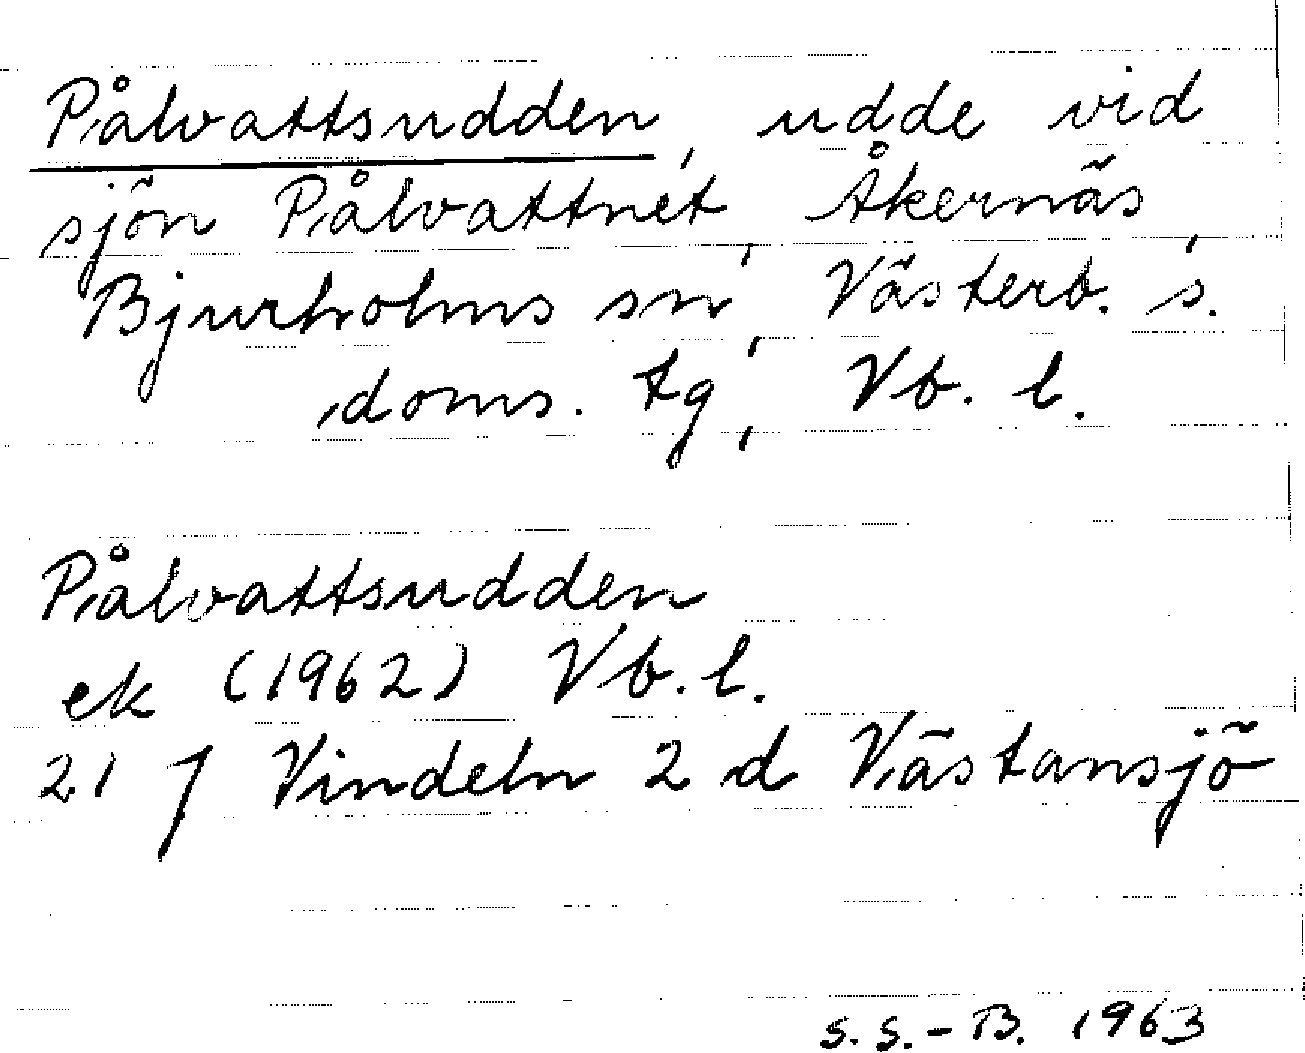 Pålvattsudden, udde vid
sjön Pålvattnet, Åkernäs,
Bjurholms sn, Västerb. s.
doms. tg, Vb. l.
Pålvattsudden
ek (1962) Vb. l.
21 J Vindeln 2 d Västansjö
S. S.-B. 1963